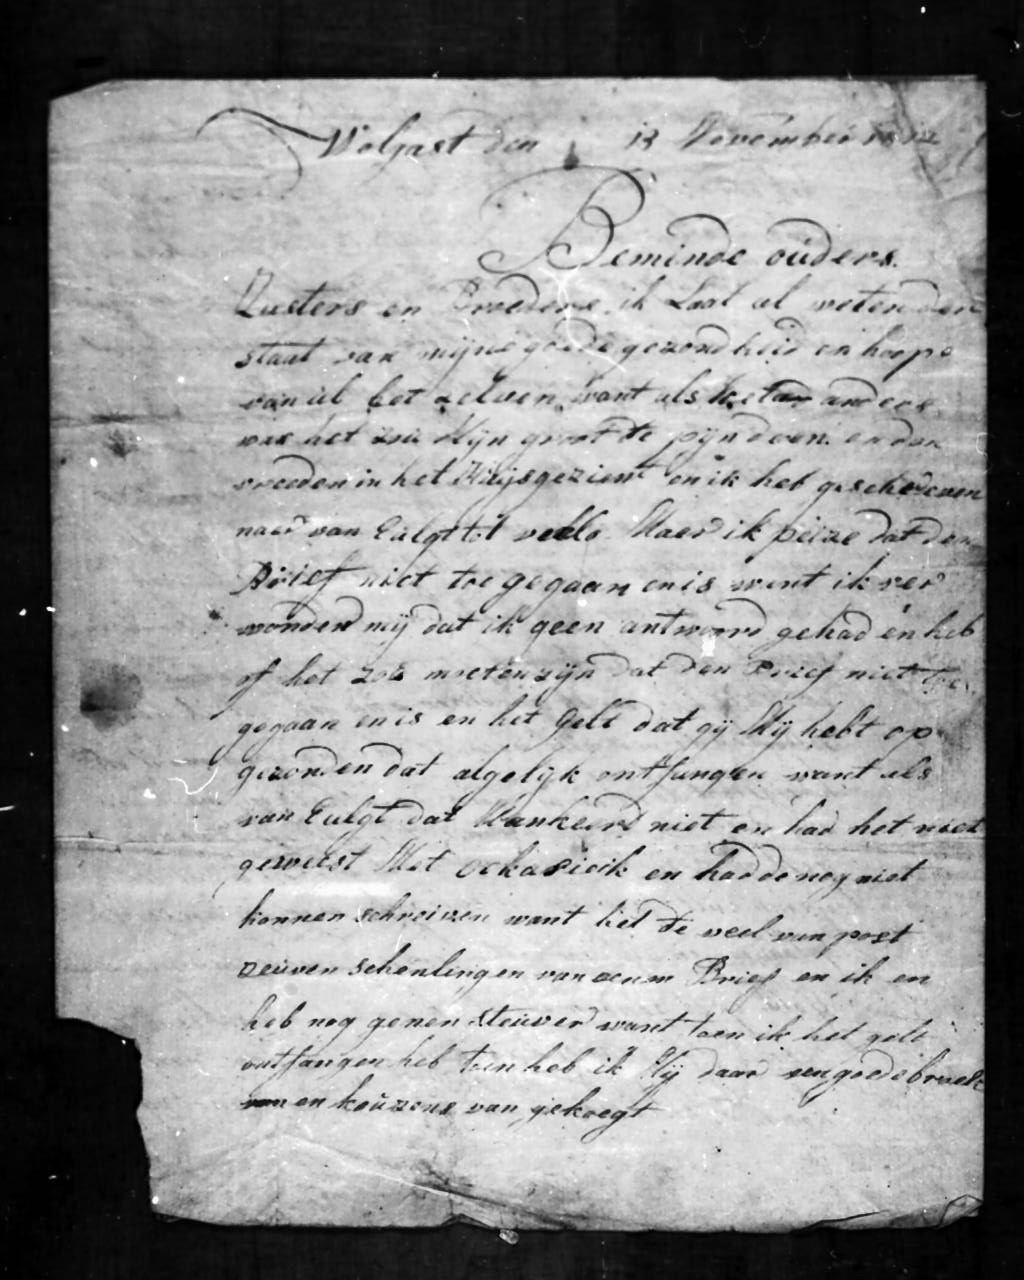 Wolgast den 13 November 1812
Beminde ouders.
Zusters en Broeders ik Laat ul weten den
staat van mijne goede gezondheid en hoope
van ul het zelven want als het anders
was het zou Mijn groot te pijn doen en den
vreeden in het Huijsgezient en ik heb geschreven
naer van Eulgt tot vello Maer ik peize dat den
Brief niet toe gegaan en is want ik ver
wonder mij dat ik geen antwoord gehad en heb
of het zou moeten zijn dat den Brief niet toe
gegaan en is en het Gelt dat gij Mij hebt op
gezonden dat algelijk ontfangen want als
van Eulgt dat Mankeerd niet en had het niet
geweest Met ockasie ik en hadde nog niet
konnen schreiven want het de veel van post
zeuven schenlingen van eenen Brief en ik en
heb nog genen steuver want toen ik het gelt
ontfangen heb toen heb ik Mij daar een goede broek
en kouzens van gekoegt